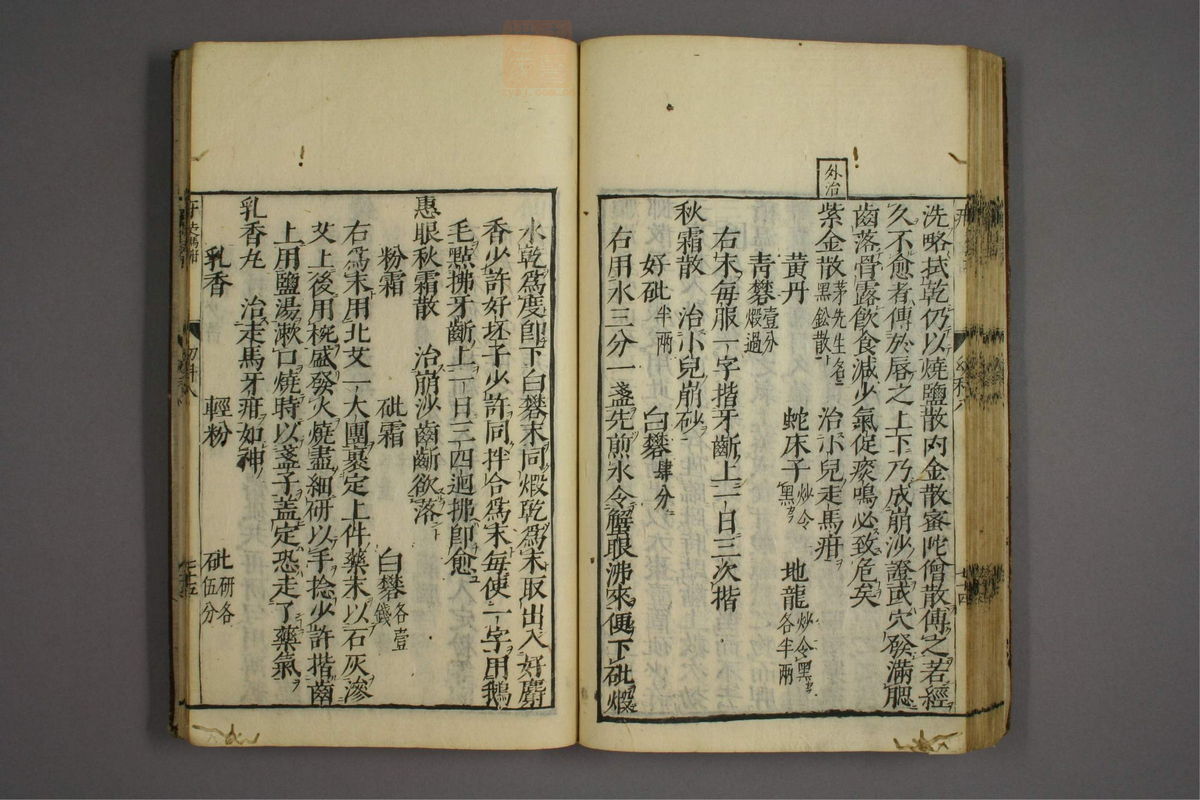 外治
洗略拭乾仍以燒鹽散內金散審陀僧散傅之若經
久不愈者傅於唇之上下乃成崩沙證或穴發滿腮
齒落骨露飮食減少氣促痰鳴必致危矣
紫金散 茅先生名黑鉛散 治小兒走馬疳
黃丹 蛇床子 炒令黑 地龍 炒令黑各半兩
靑礬 壹分煅過
右末每服一字揩牙齗上一日三次揩
秋霜散 治小兒崩砂
好砒 半兩 白礬 肆分
右用水三分一盞先煎水令蟹眼沸來便下砒煅
水乾爲度卽下白礬末同煅乾爲末取出入好麝
香少許好坯子少許同拌合爲末每使一字用鵝
毛點拂牙齗上一日三四迴拂卽愈
惠眼秋霜散 治崩沙齒齗欲落
粉霜 砒霜 白礬 各壹錢
右爲末用北艾一大團裹定上件藥末以石灰滲
艾上後用椀盛發火燒盡細研以手捻少許揩齒
上用鹽湯漱口燒時以盞子蓋定恐走了藥氣
乳香丸 治走馬牙疳如神
乳香 輕粉 砒 研各伍分